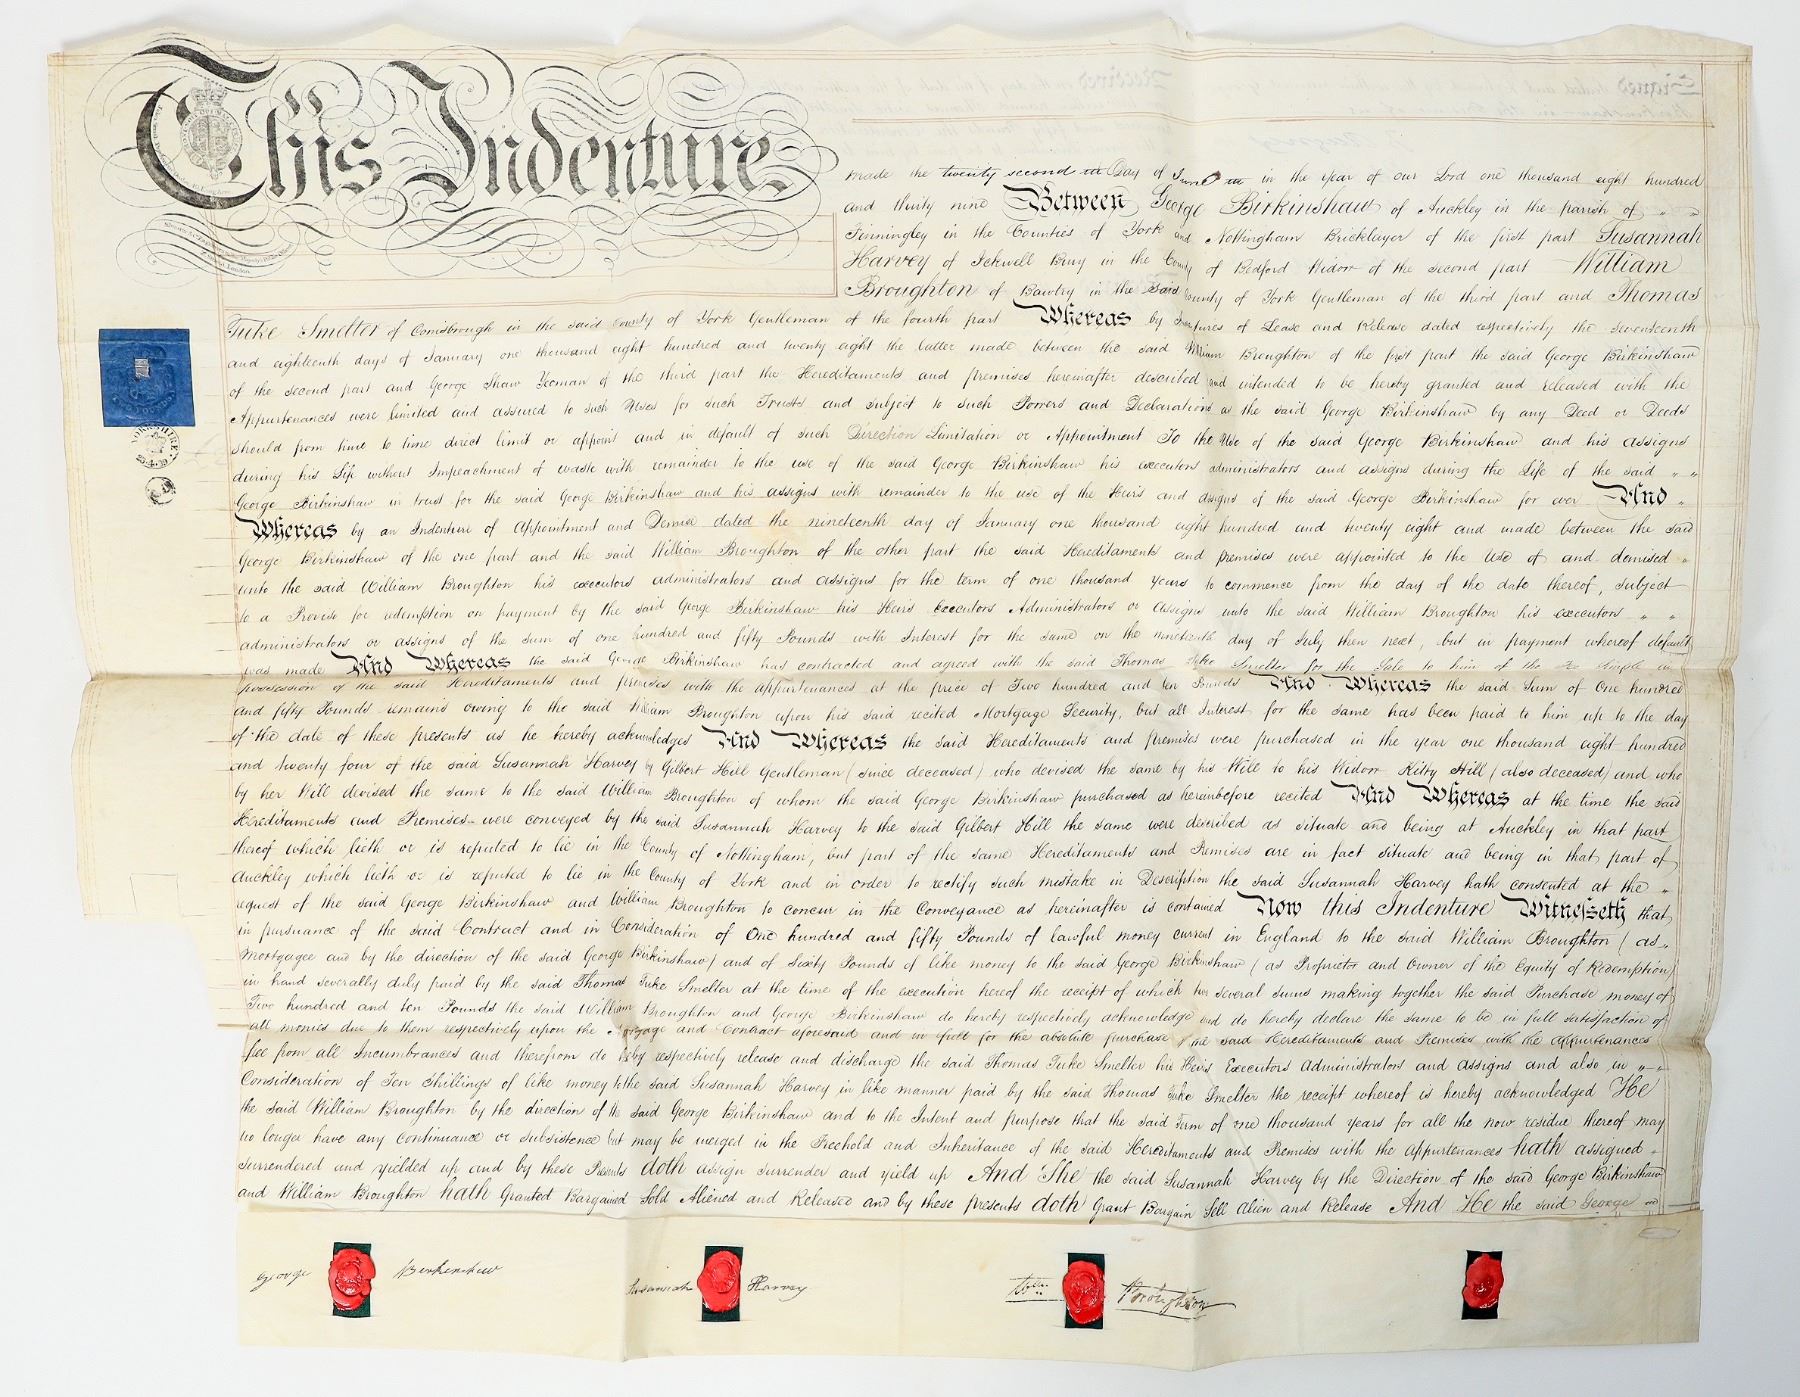 This Indenture
made the twenty second Day of June in the year of our Lord one thousand eight hundred
and thirty nine Between George Birkinshaw of Auckley in the parish of
Finningley in the Counties of York and Nottingham Bricklayer of the first part Susannah
Harvey of Ickwell Bury in the County of Bedford Widow of the second part William
Broughton of Bawtry in the said County of York Gentleman of the third part and Thomas
Tuke Smelter of Conisbrough in the said County of York Gentleman of the fourth part Whereas by Indentures of Lease and Release dated respectively the seventeenth
and eighteenth days of January one thousand eight hundred and twenty eight the latter made between the said William Broughton of the first part the said George Birkinshaw
of the second part and George Shaw Yeoman of the third part the Hereditaments and premises hereinafter described and intended to be hereby granted and released with the
Appurtenances were limited and assured to such Uses for such Trusts and subject to such Powers and Declarations as the said George Birkinshaw by any Deed or Deeds
should from time to time direct limit or appoint and in default of such Direction Limitation or Appointment To the Use of the said George Birkinshaw and his assigns
during his Life without Impeachment of waste with remainder to the use of the said George Birkinshaw his executors administrators and assigns during the Life of the said
George Birkinshaw in trust for the said George Birkinshaw and his assigns with remainder to the use of the Heirs and assigns of the said George Birkinshaw for ever And
Whereas by an Indenture of Appointment and Demise dated the nineteenth day of January one thousand eight hundred and twenty eight and made between the said
George Birkinshaw of the one part and the said William Broughton of the other part the said Hereditaments and premises were appointed to the Use of and demised
unto the said William Broughton his executors administrators and assigns for the term of one thousand years to commence from the day of the date thereof, subject
to a Proviso for redemption on payment by the said George Birkinshaw his Heirs Executors Administrators or Assigns unto the said William Broughton his executors
administrators or assigns of the sum of one hundred and fifty Pounds with Interest for the same on the nineteenth day of July then next, but in payment whereof default
was made And Whereas the said George Birkinshaw has contracted and agreed with the said Thomas Tuke Smelter for the Sale to him of the Fee simple in
possession of the said Hereditaments and premises with the appurtenances at the price of Two hundred and ten Pounds And Whereas the said Sum of One hundred
and fifty Pounds remains owing to the said William Broughton upon his said recited Mortgage Security, but all Interest for the same has been paid to him up to the day
of the date of these presents as he hereby acknowledges And Whereas the said Hereditaments and premises were purchased in the year one thousand eight hundred
and twenty four of the said Susannah Harvey by Gilbert Hill Gentleman (since deceased) who devised the same by his Will to his Widow Kitty Hill (also deceased) and who
by her Will devised the same to the said William Broughton of whom the said George Birkinshaw purchased as hereinbefore recited And Whereas at the time the said
Hereditaments and Premises were conveyed by the said Susannah Harvey to the said Gilbert Hill the same were described as situate and being at Auckley in that part
thereof which lieth or is reputed to lie in the County of Nottingham, but part of the same Hereditaments and Premises are in fact situate and being in that part of
Auckley which lieth or is reputed to lie in the County of York and in order to rectify such mistake in Description the said Susannah Harvey hath consented at the
request of the said George Birkinshaw and William Broughton to concur in the Conveyance as hereinafter is contained Now this Indenture Witnesseth that
in pursuance of the said Contract and in Consideration of One hundred and fifty Pounds of lawful money current in England to the said William Broughton (as
Mortgagee and by the direction of the said George Birkinshaw) and of Sixty Pounds of like money to the said George Birkinshaw (as Proprietor and Owner of the Equity of Redemption)
in hand severally duly paid by the said Thomas Tuke Smelter at the time of the execution hereof the receipt of which two several sums making together the said Purchase money of
Two hundred and ten Pounds the said William Broughton and George Birkinshaw do hereby respectively acknowledge and do hereby declare the same to be in full satisfaction of
all monies due to them respectively upon the Mortgage and Contract aforesaid and in full for the absolute purchase of the said Hereditaments and Premises with the appurtenances
free from all Incumbrances and therefrom do hereby respectively release and discharge the said Thomas Tuke Smelter his Heirs Executors Administrators and Assigns and also in
Consideration of Ten Shillings of like money to the said Susannah Harvey in like manner paid by the said Thomas Tuke Smelter the receipt whereof is hereby acknowledged He
the said William Broughton by the direction of the said George Birkinshaw and to the Intent and purpose that the said Term of one thousand years for all the now residue thereof may
no longer have any Continuance or subsistence but may be merged in the Freehold and Inheritance of the said Hereditaments and Premises with the Appurtenances hath assigned
surrendered and yielded up and by these Presents doth assign surrender and yield up And She the said Susannah Harvey by the Direction of the said George Birkinshaw
and William Broughton hath Granted Bargained Sold Aliened and Released and by these presents doth Grant Bargain Sell Alien and Release And He the said George
George Birkenshaw
Susannah Harvey
Wm Broughton